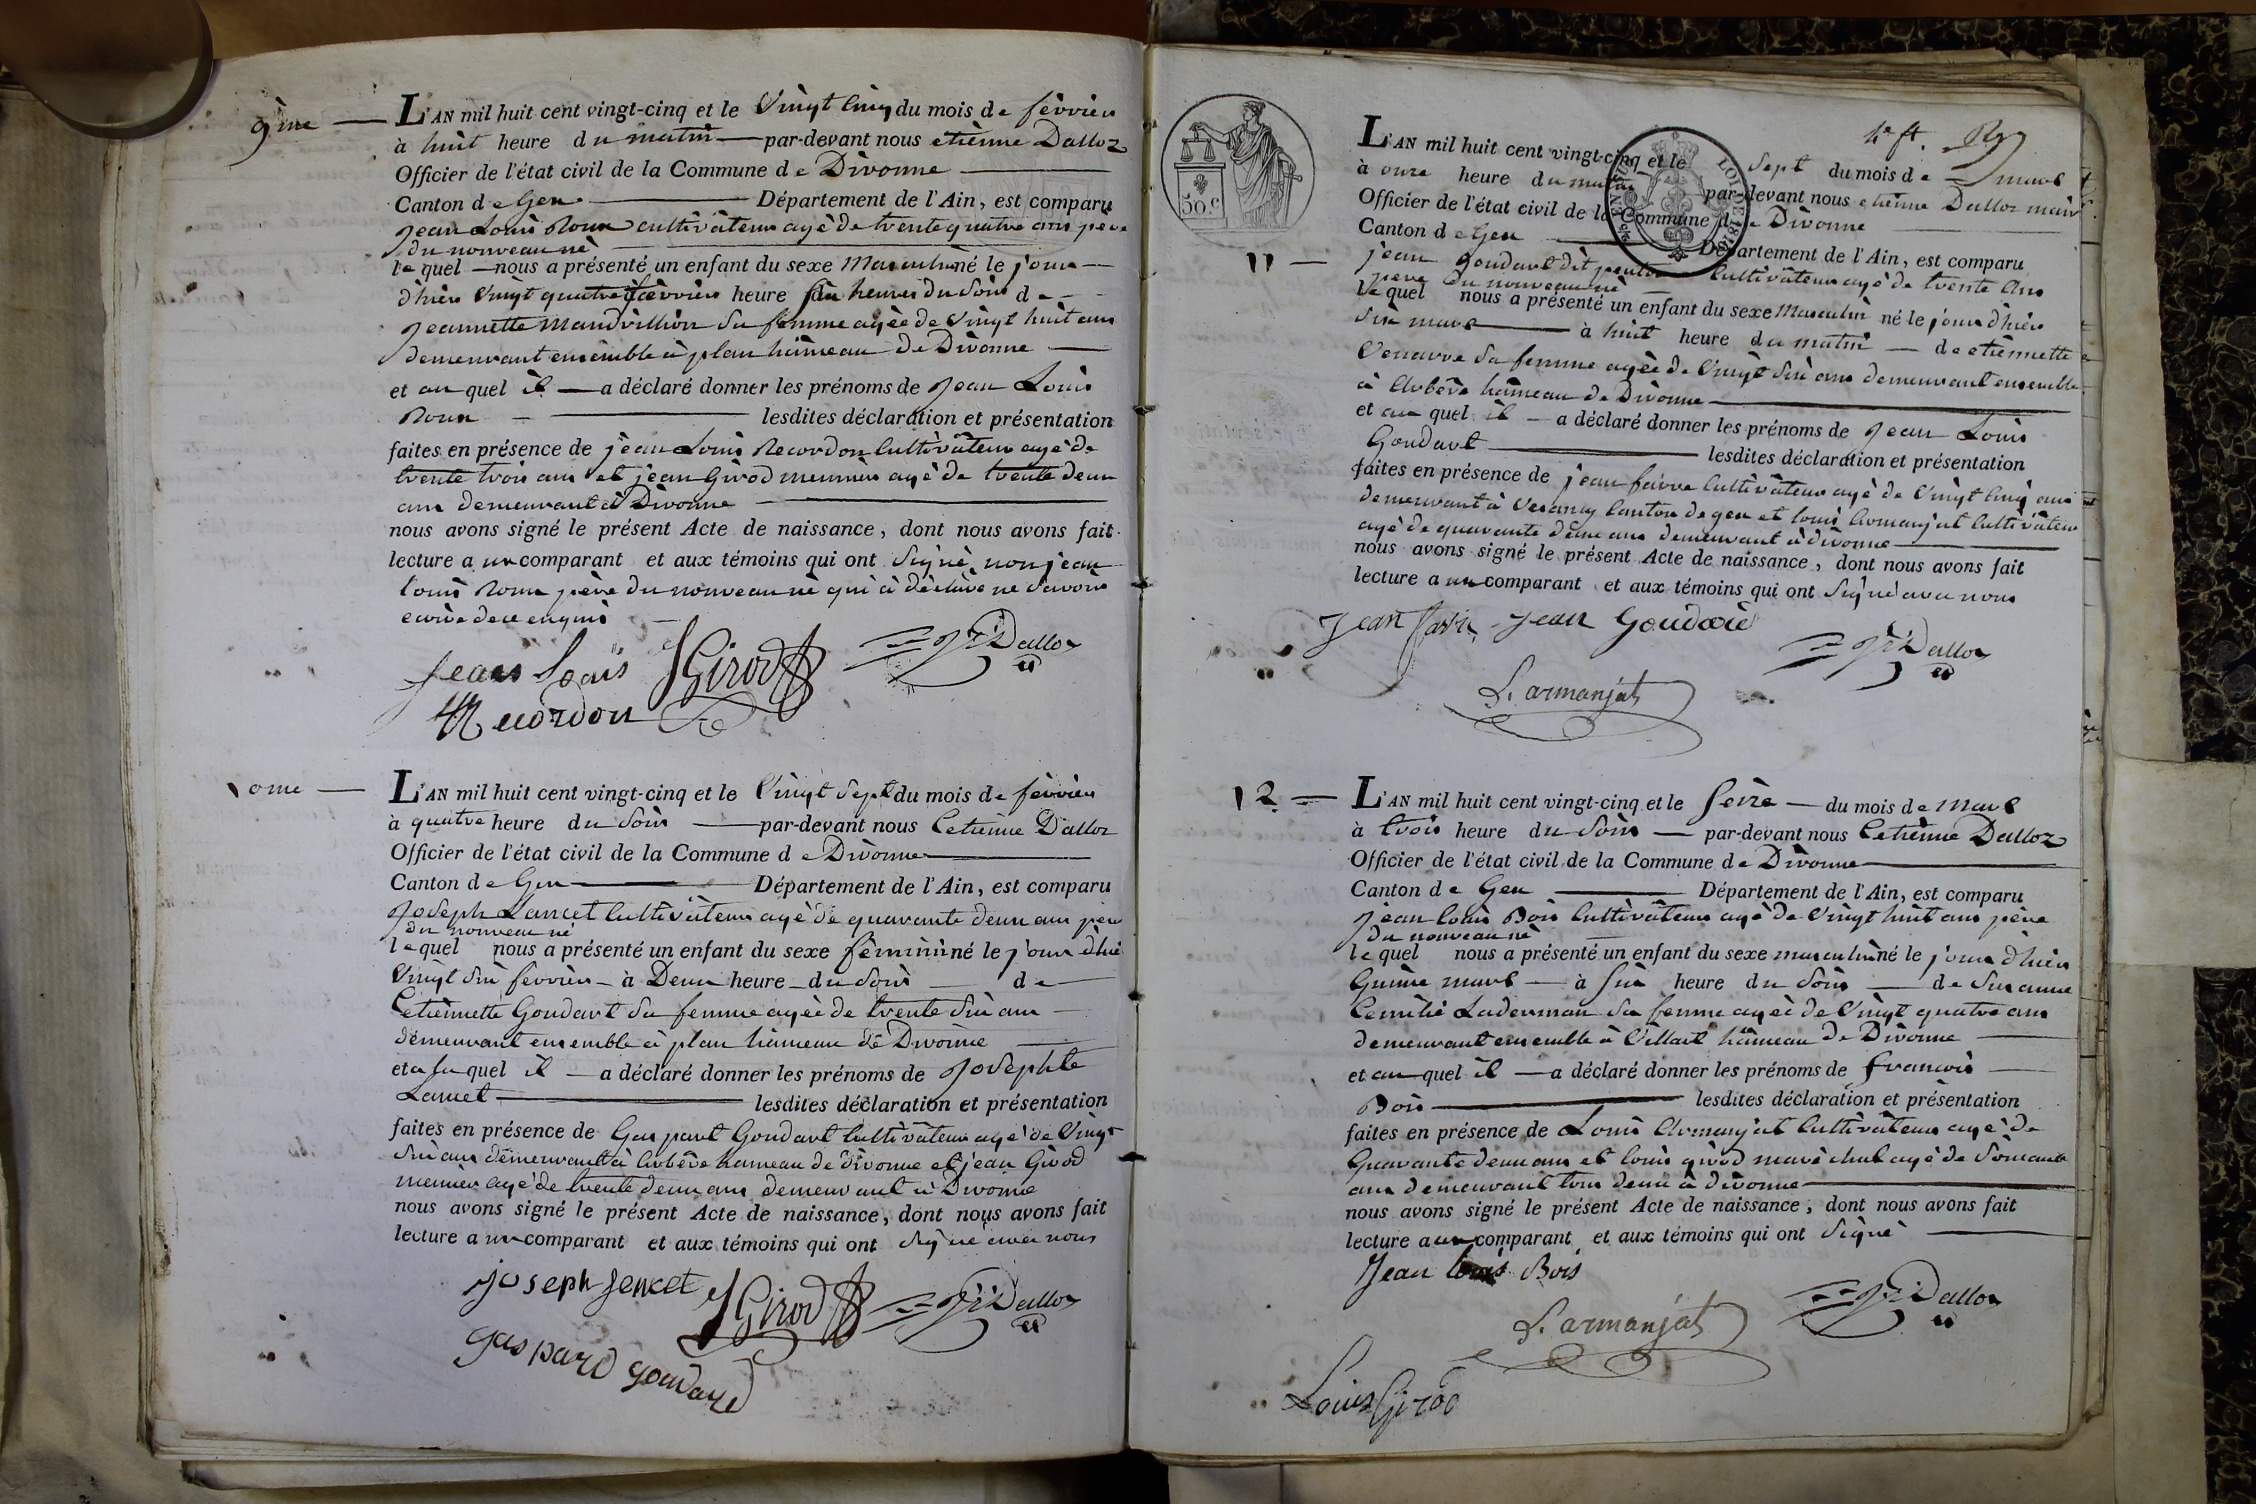 9ème — L'AN mil huit cent vingt-cinq et le Vingt Cinq du mois de fevrier
à huit heure du matin — par-devant nous etienne Dalloz
Officier de l'état civil de la Commune de Divonne
Canton de Gex Département de l'Ain, est comparu
jean Louis Roux cultivateur agé de trente quatre ans pere
du nouveau né
lequel nous a présenté un enfant du sexe Masculin né le jour
d'hier Vingt quatre fevrier heure six heures du Soir de
jeannette Mandrillion sa femme agée de Vingt huit ans
demeurant ensemble à plan hameau de Divonne
et au quel il a déclaré donner les prénoms de jean Louis
Roux lesdites déclaration et présentation
faites en présence de jean Louis Recordon Cultivateur agé de
trente trois ans et jean Girod meunier agé de trente deux
ans demeurant à Divonne
nous avons signé le présent Acte de naissance, dont nous avons fait
lecture au comparant et aux témoins qui ont Signé, non jean
Louis Roux père du nouveau né qui à déclaré ne Savoir
ecrire de ce enquis
jean Louis JGirod Dalloz
Recordon
10me — L'AN mil huit cent vingt-cinq et le Vingt Sept du mois de fevrier
à quatre heure du Soir par-devant nous Etienne Dalloz
Officier de l'état civil de la Commune de Divonne
Canton de Gex Département de l'Ain, est comparu
joseph Lancet Cultivateur agé de quarante deux ans pere
du nouveau né
lequel nous a présenté un enfant du sexe féminin né le jour d'hier
Vingt Six fevrier à Deux heure du Soir de
Etiennette Goudart Sa femme agée de trente Six ans
demeurant ensemble à plan hameau de Divonne
et a la quel il a déclaré donner les prénoms de josephte
Lancet lesdites déclaration et présentation
faites en présence de Gaspart Goudart Cultivateur agé de Vingt
Six ans demeurant à Arbère hameau de Divonne et jean Girod
meunier agé de trente deux ans demeurant à Divonne
nous avons signé le présent Acte de naissance, dont nous avons fait
lecture au comparant et aux témoins qui ont Signé avec nous
joseph Lencet JGirod Dalloz
gaspard goudard
50.c
LOI DE 1816
4e ft.
L'AN mil huit cent vingt-cinq et le Sept du mois de mars
à onze heure du matin par-devant nous etienne Dalloz maire
Officier de l'état civil de la Commune de Divonne
Canton de Gex Département de l'Ain, est comparu
11 — jean Goudart dit Cultivateur agé de trente Ans
pere du nouveau né
lequel nous a présenté un enfant du sexe Masculin né le jour d'hier
Six mars à huit heure du matin de etiennette
Venarre Sa femme agée de Vingt Six ans demeurant ensemble
à Arbère hameau de Divonne
et au quel il a déclaré donner les prénoms de jean Louis
Goudart lesdites déclaration et présentation
faites en présence de jean favre Cultivateur agé de Vingt Cinq ans
demeurant à Vesancy Canton de gex et Louis Armanjat Cultivateur
agé de quarante deux ans demeurant à divonne
nous avons signé le présent Acte de naissance, dont nous avons fait
lecture au comparant et aux témoins qui ont Signé avec nous
Jean favre Jean Goudard Dalloz
L. armanjat
12 — L'AN mil huit cent vingt-cinq et le Seize du mois de Mars
à trois heure du Soir par-devant nous Etienne Dalloz
Officier de l'état civil de la Commune de Divonne
Canton de Gex Département de l'Ain, est comparu
jean Louis Bois Cultivateur agé de Vingt huit ans père
du nouveau né
lequel nous a présenté un enfant du sexe masculin né le jour d'hier
Quinze mars à Six heure du Soir de Susanne
Emilie Laderman Sa femme agée de Vingt quatre ans
demeurant ensemble à Villart hameau de Divonne
et au quel il a déclaré donner les prénoms de francois
Bois lesdites déclaration et présentation
faites en présence de Louis Armanjat Cultivateur agé de
Quarante deux ans et Louis girod maréchal agé de Soixante
ans demeurant tous deux à divonne
nous avons signé le présent Acte de naissance, dont nous avons fait
lecture au comparant et aux témoins qui ont Signé
Jean Louis Bois Dalloz
L. armanjat
Louis Girod